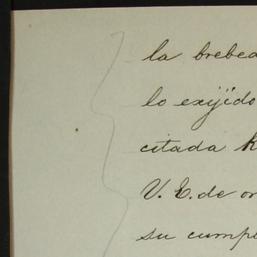 la brebed
lo exijido
citada
V. E. de or
su cumpl